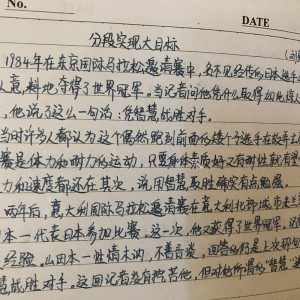 No.
DATE
分段实现大目标
(刘
1984年在东京国际马拉松邀请赛中,名不见经传的日本选手
人意料地夺得了世界冠军。当记者问他凭什么取得如此惊人
,他说了这么一句话:凭智慧战胜对手。
当时许多人都认为这个偶然跑到前面的矮个子选手在故弄玄
赛是体力和耐力的运动,只要身体素质好又有耐性就有望
力和速度都还在其次,说用智慧取胜确实有点勉强。
两年后,意大利国际马拉松邀请赛在意大利北部城市米兰
本一代表日本参加比赛。这一次,他又获得了世界冠军。记者
经验。山田本一性情木讷,不善言谈,回答的仍是上次那句
慧战胜对手。这回记者没有挖苦他,但对他所谓的"智慧"迷